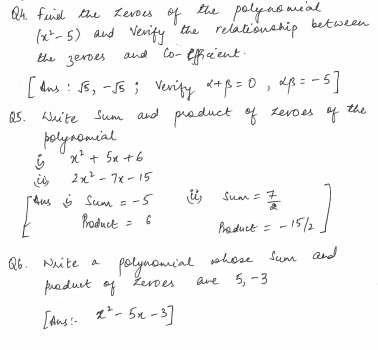 Q4. Find the zeroes of the polynomial
(x² - 5) and verify the relationship between
the zeroes and Co-efficient.
[Ans : √5, -√5 ; Verify α+β = 0 , αβ = -5]
Q5. Write Sum and product of zeroes of the
polynomial
i) x² + 5x + 6
ii) 2x² - 7x - 15
[Ans i) Sum = -5 ii) Sum = 7/2
Product = 6 Product = -15/2]
Q6. Write a polynomial whose Sum and
product of zeroes are 5, -3
[Ans:- x² - 5x - 3]